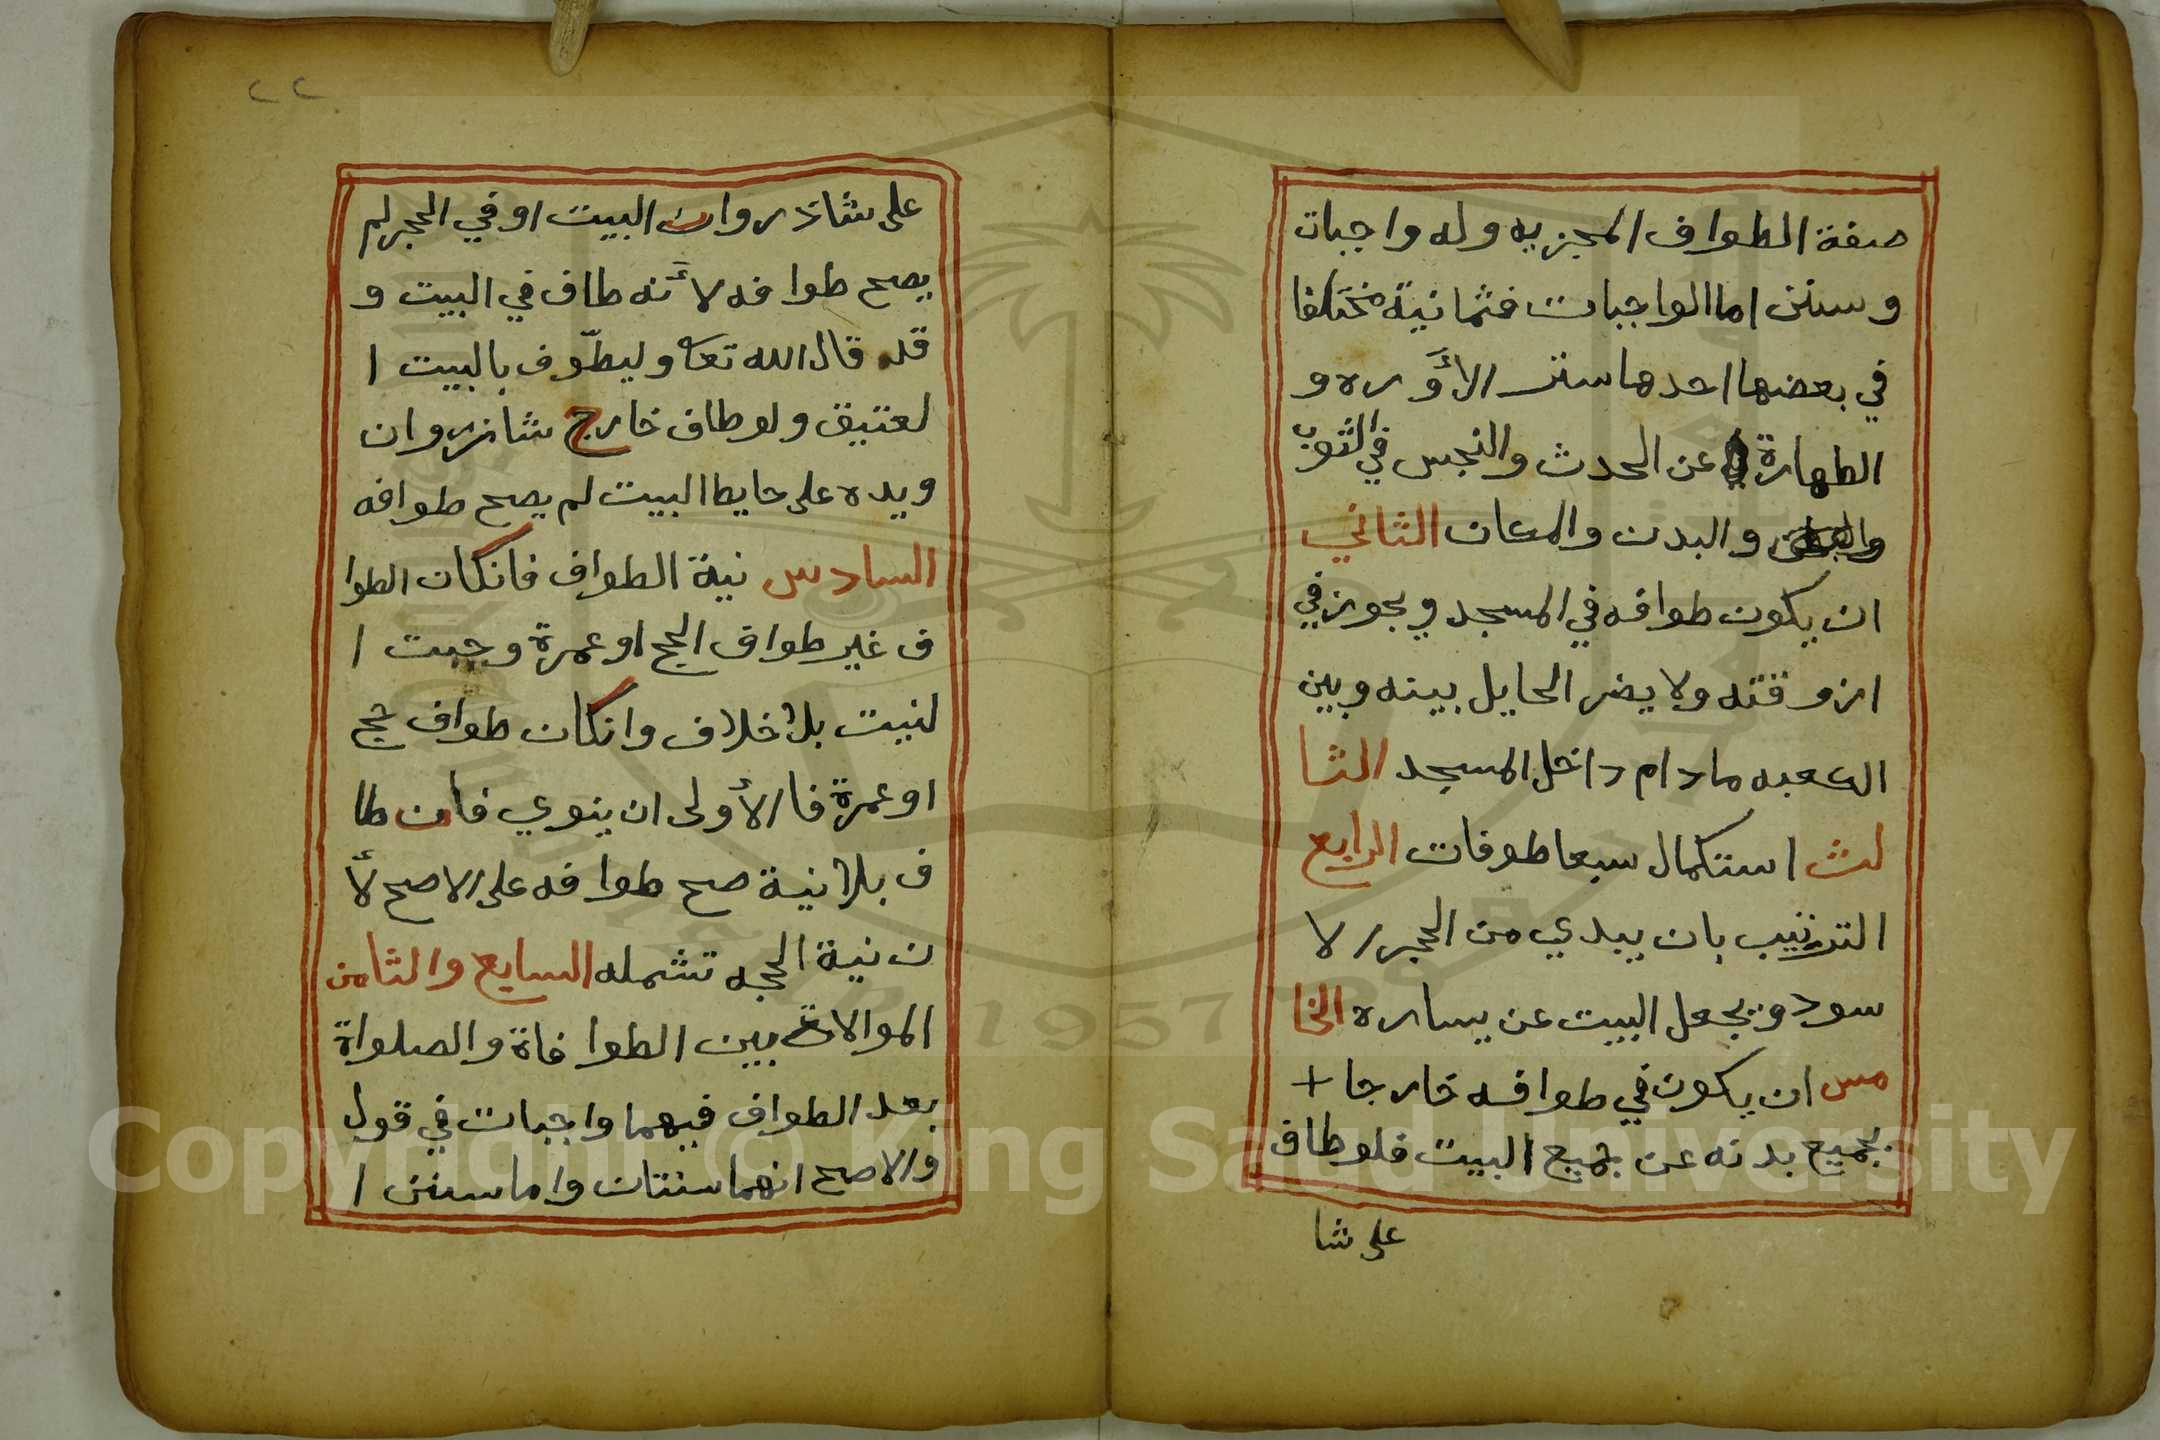 صفة الطواف المجزيه وله واجبات
وسنن اما الواجبات فثمانية مختلفا
في بعضها احدها ستر الأوره و
الطهارة عن الحدث والنجس في الثوب
والبدن والمكان الثاني
ان يكون طوافه في المسجد ويجوز في
از وقته ولا يضر الحايل بينه وبين
الكعبه مادام داخل المسجد الثا
لث استكمال سبعا طوفات الرابع
الترتيب بان يبدي من الحجر الا
سود ويجعل البيت عن يساره الخا
مس ان يكون في طوافه خارجا
بجميع بدنه عن جميع البيت فلو طاف
على شا
٢٢
على شاذروان البيت او في الحجر لم
يصح طوافه لأنه طاف في البيت و
قد قال الله تعا وليطّوف بالبيت ا
لعتيق ولو طاف خارج شازروان
ويده على حايط البيت لم يصح طوافه
السادس نية الطواف فانكان الطوا
ف غير طواف الحج او عمرة وجبت ا
لنيت بلا خلاف وانكان طواف حج
او عمرة فا الأولى ان ينوي فان طا
ف بلا نية صح طوافه على الاصح لأ
ن نية الحجه تشمله السابع والثامن
الموالات بين الطوا فاة والصلواة
بعد الطواف فيهما واجبات في قول
والاصح انهما سنتان واما سنن ا
Copyright © King Saud University
1957